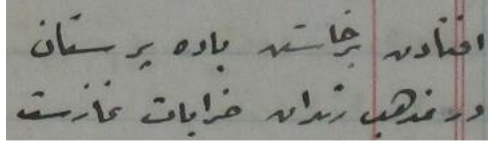 افتادن برخاستن باده پرستان
در مذهب رندان خرابات نمازست